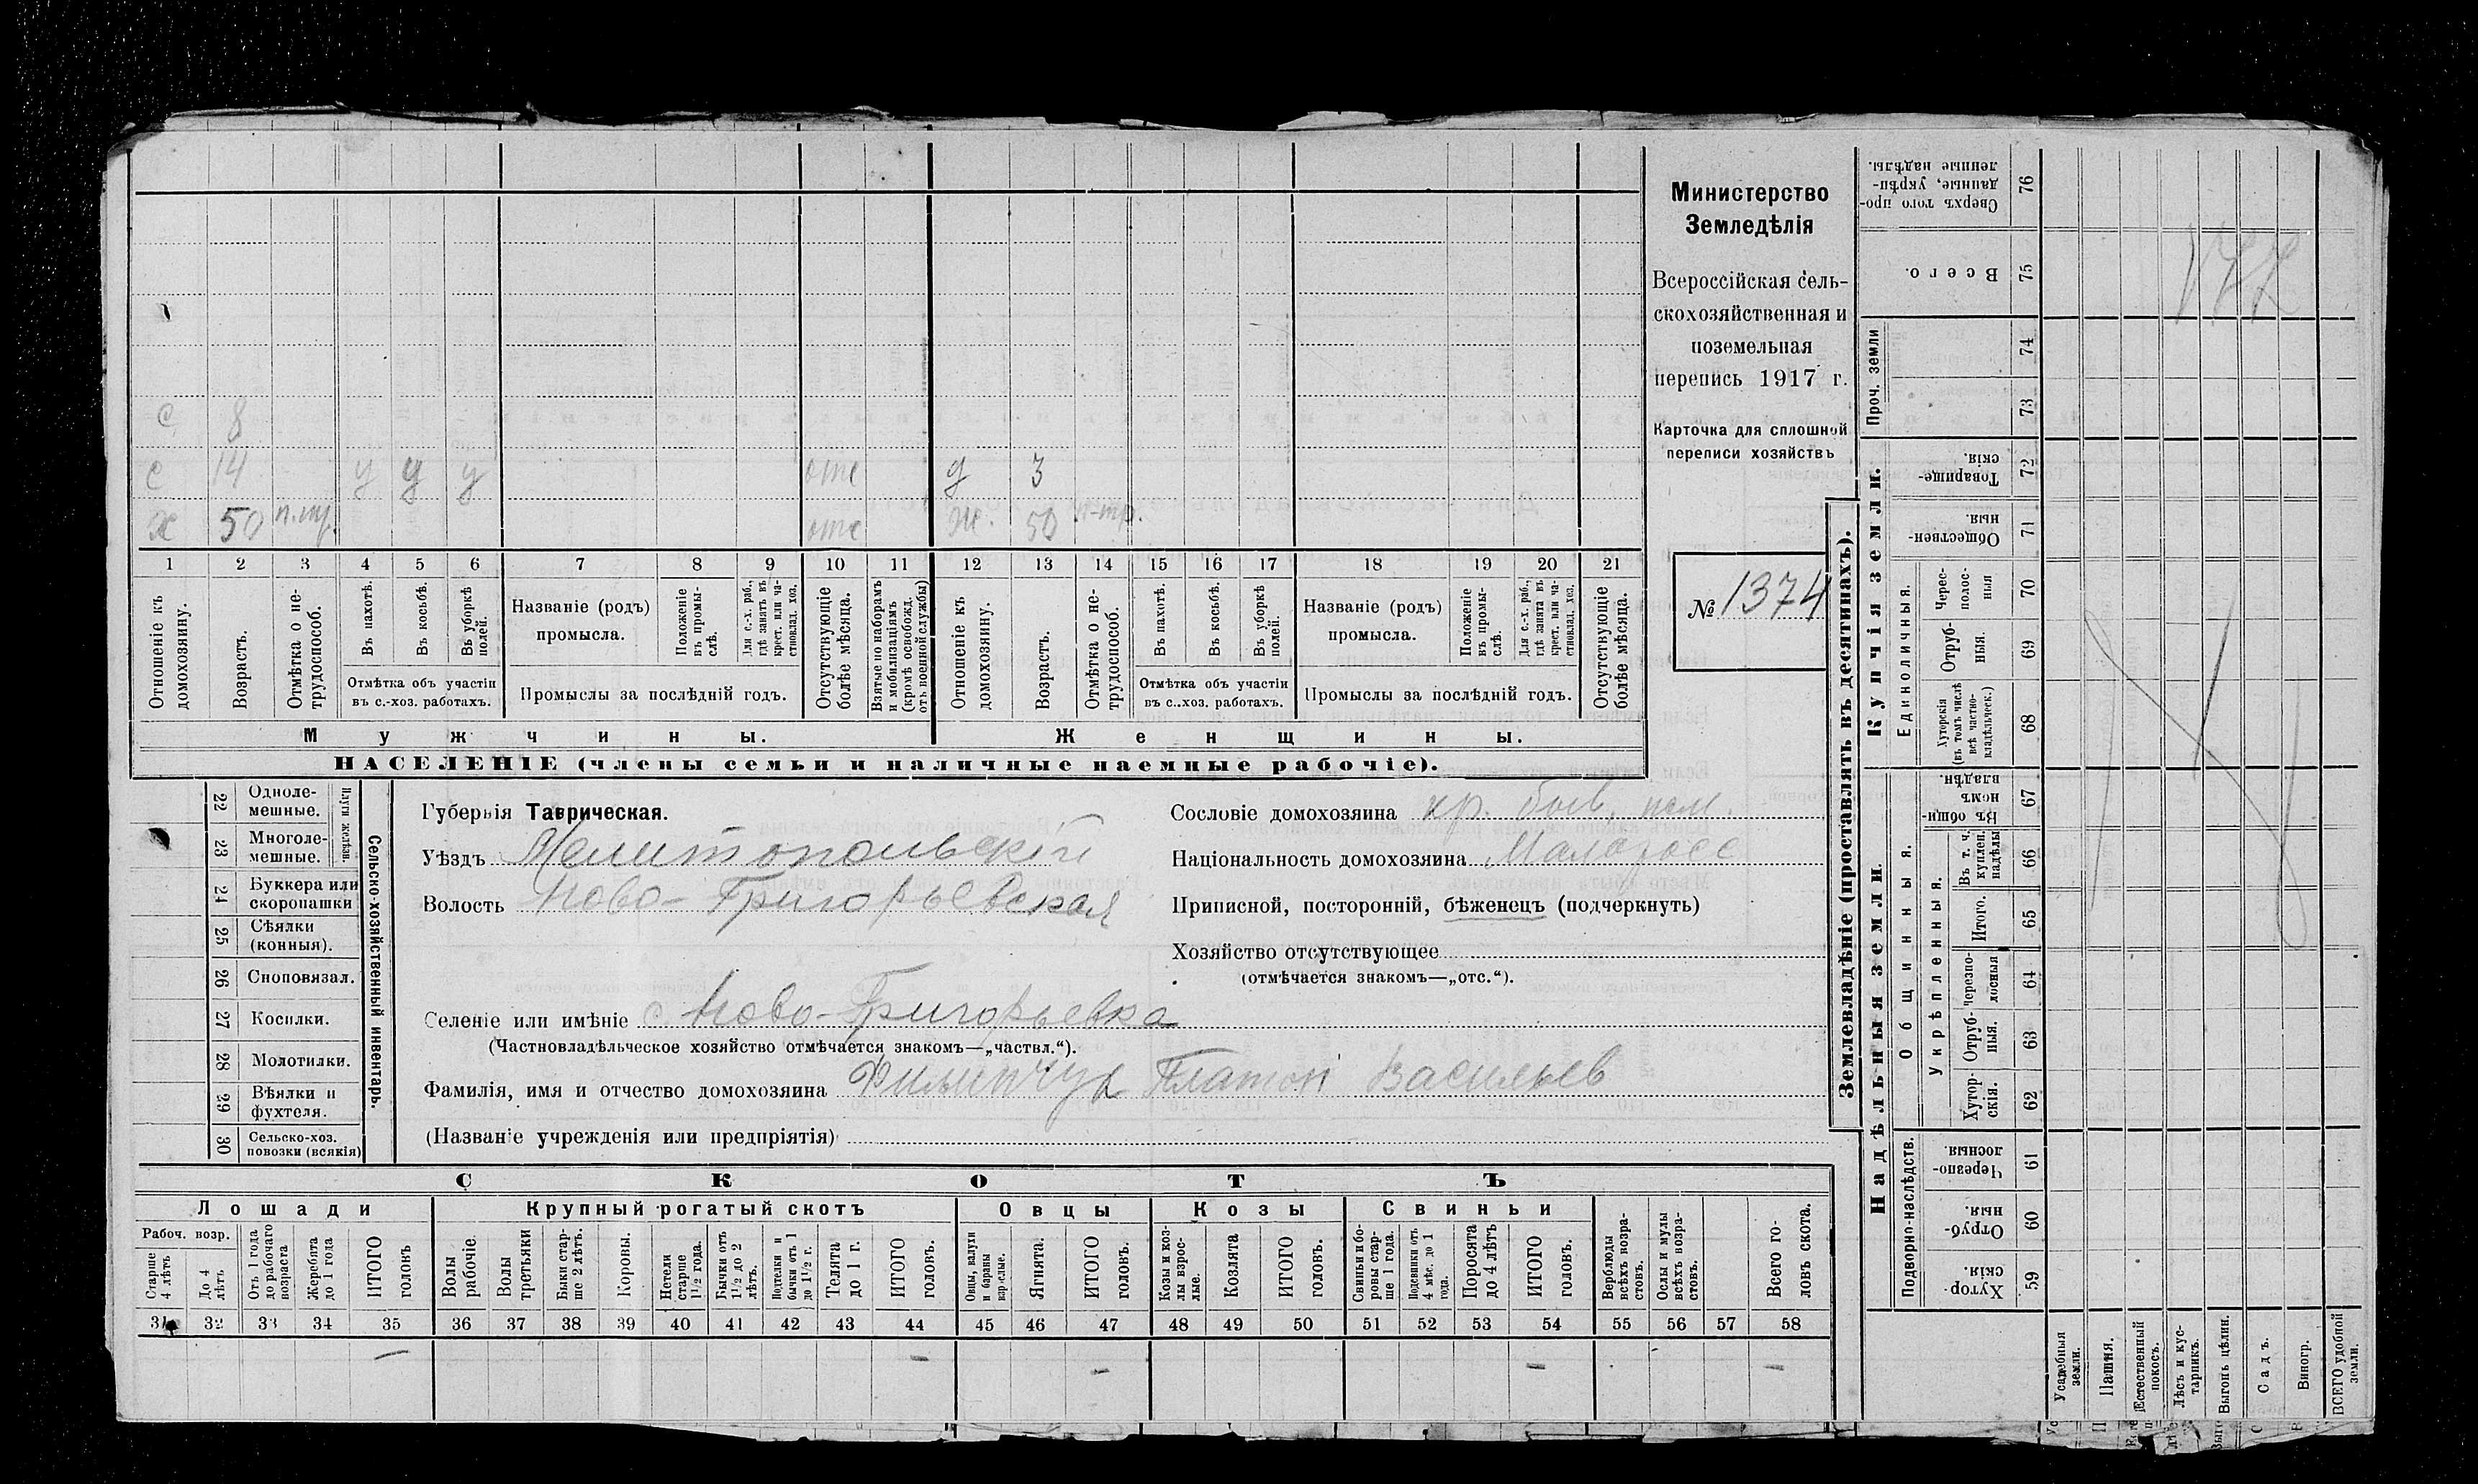 Министерство
Земледѣлія
Всероссійская сель-
скохозяйственная и
поземельная
перепись 1917 г.
Карточка для сплошной
переписи хозяйствъ
№ 1374
с 8
с 14 у у у отс д 3
х 50 п.тр. отс ж. 50 п-тр.
1 2 3 4 5 6 7 8 9 10 11 12 13 14 15 16 17 18 19 20 21
Отношеніе къ домохозяину.
Возрастъ.
Отмѣтка о не-трудоспособ.
Въ пахотѣ.
Въ косьбѣ.
Въ уборкѣ полей.
Отмѣтка объ участіи
въ с.-хоз. работахъ.
Названіе (родъ)
промысла.
Положеніе въ промы-слѣ.
Для с.-х. раб., гдѣ занятъ въ крест. или ча-стновлад. хоз.
Промыслы за послѣдній годъ.
Отсутствующіе болѣе мѣсяца.
Взятые по наборамъ и мобилизаціямъ (кромѣ освобожд. отъ военной службы)
Отношеніе къ домохозяину.
Возрастъ.
Отмѣтка о не-трудоспособ.
Въ пахотѣ.
Въ косьбѣ.
Въ уборкѣ полей.
Отмѣтка объ участіи
въ с.-хоз. работахъ.
Названіе (родъ)
промысла.
Положеніе въ промы-слѣ.
Для с.-х. раб., гдѣ занята въ крест. или ча-стновлад. хоз.
Промыслы за послѣдній годъ.
Отсутствующіе болѣе мѣсяца.
Мужчины. Женщины.
НАСЕЛЕНІЕ (члены семьи и наличные наемные рабочіе).
Сельско-хозяйственный инвентарь.
Плуги желѣзн.
22 Одноле-мешные.
23 Многоле-мешные.
24 Буккера или скоропашки
25 Сѣялки (конныя).
26 Сноповязал.
27 Косилки.
28 Молотилки.
29 Вѣялки и фухтеля.
30 Сельско-хоз. повозки (всякія)
Губернія Таврическая.
Уѣздъ Мелитопольскій
Волость Ново-Григорьевская
Селеніе или имѣніе с. Ново-Григорьевка
(Частновладѣльческое хозяйство отмѣчается знакомъ—„частвл.“).
Фамилія, имя и отчество домохозяина Филипчук Платон Васильев
(Названіе учрежденія или предпріятія)
Сословіе домохозяина кр. быв. пом.
Національность домохозяина Малоросс
Приписной, посторонній, бѣженецъ (подчеркнуть)
Хозяйство отсутствующее
(отмѣчается знакомъ—„отс.“).
СКОТЪ
Лошади Крупный рогатый скотъ Овцы Козы Свиньи
Рабоч. возр.
Старше 4 лѣтъ
До 4 лѣтъ
Отъ 1 года до рабочаго возраста
Жеребята до 1 года
ИТОГО головъ
Волы рабочіе.
Волы третьяки
Быки стар-ше 2 лѣтъ.
Коровы.
Нетели старше 1½ года.
Бычки отъ 1½ до 2 лѣтъ.
Подтелки и бычки отъ 1 до 1½ г.
Телята до 1 г.
ИТОГО головъ.
Овцы, валухи и бараны взрослые.
Ягнята.
ИТОГО головъ.
Козы и коз-лы взрос-лые.
Козлята
ИТОГО головъ.
Свиньи и бо-ровы стар-ше 1 года.
Подсвинки отъ 4 мѣс. до 1 года.
Поросята до 4 лѣтъ
ИТОГО головъ.
Верблюды всѣхъ возра-стовъ.
Ослы и мулы всѣхъ возра-стовъ.
Всего го-ловъ скота.
31 32 33 34 35 36 37 38 39 40 41 42 43 44 45 46 47 48 49 50 51 52 53 54 55 56 57 58
– – – – –
Землевладѣніе (проставлять въ десятинахъ).
Купчія земли.
Надѣльныя земли.
Сверхъ того про-данные, укрѣп-ленные надѣлы. 76
Всего. 75
Проч. земли 74
73
Товарище-скія. 72
Обществен-ныя. 71
Единоличныя.
Черес-полос-ныя 70
Отруб-ныя. 69
Хуторскія (въ томъ числѣ всѣ частно-владѣльческ.) 68
Общинныя.
Въ общин-номъ владѣн. 67
Укрѣпленныя.
Въ т. ч. куплен. надѣлы 66
Итого. 65
Черезпо-лосныя 64
Отруб-ныя. 63
Хутор-скія. 62
Подворно-наслѣдств.
Черезпо-лосныя 61
Отруб-ныя. 60
Хутор-скія. 59
Усадебныя земли.
Пашня.
Естественный покосъ.
Лѣсъ и кус-тарникъ.
Выгонъ цѣлин.
Садъ.
Виногр.
ВСЕГО удобной земли.